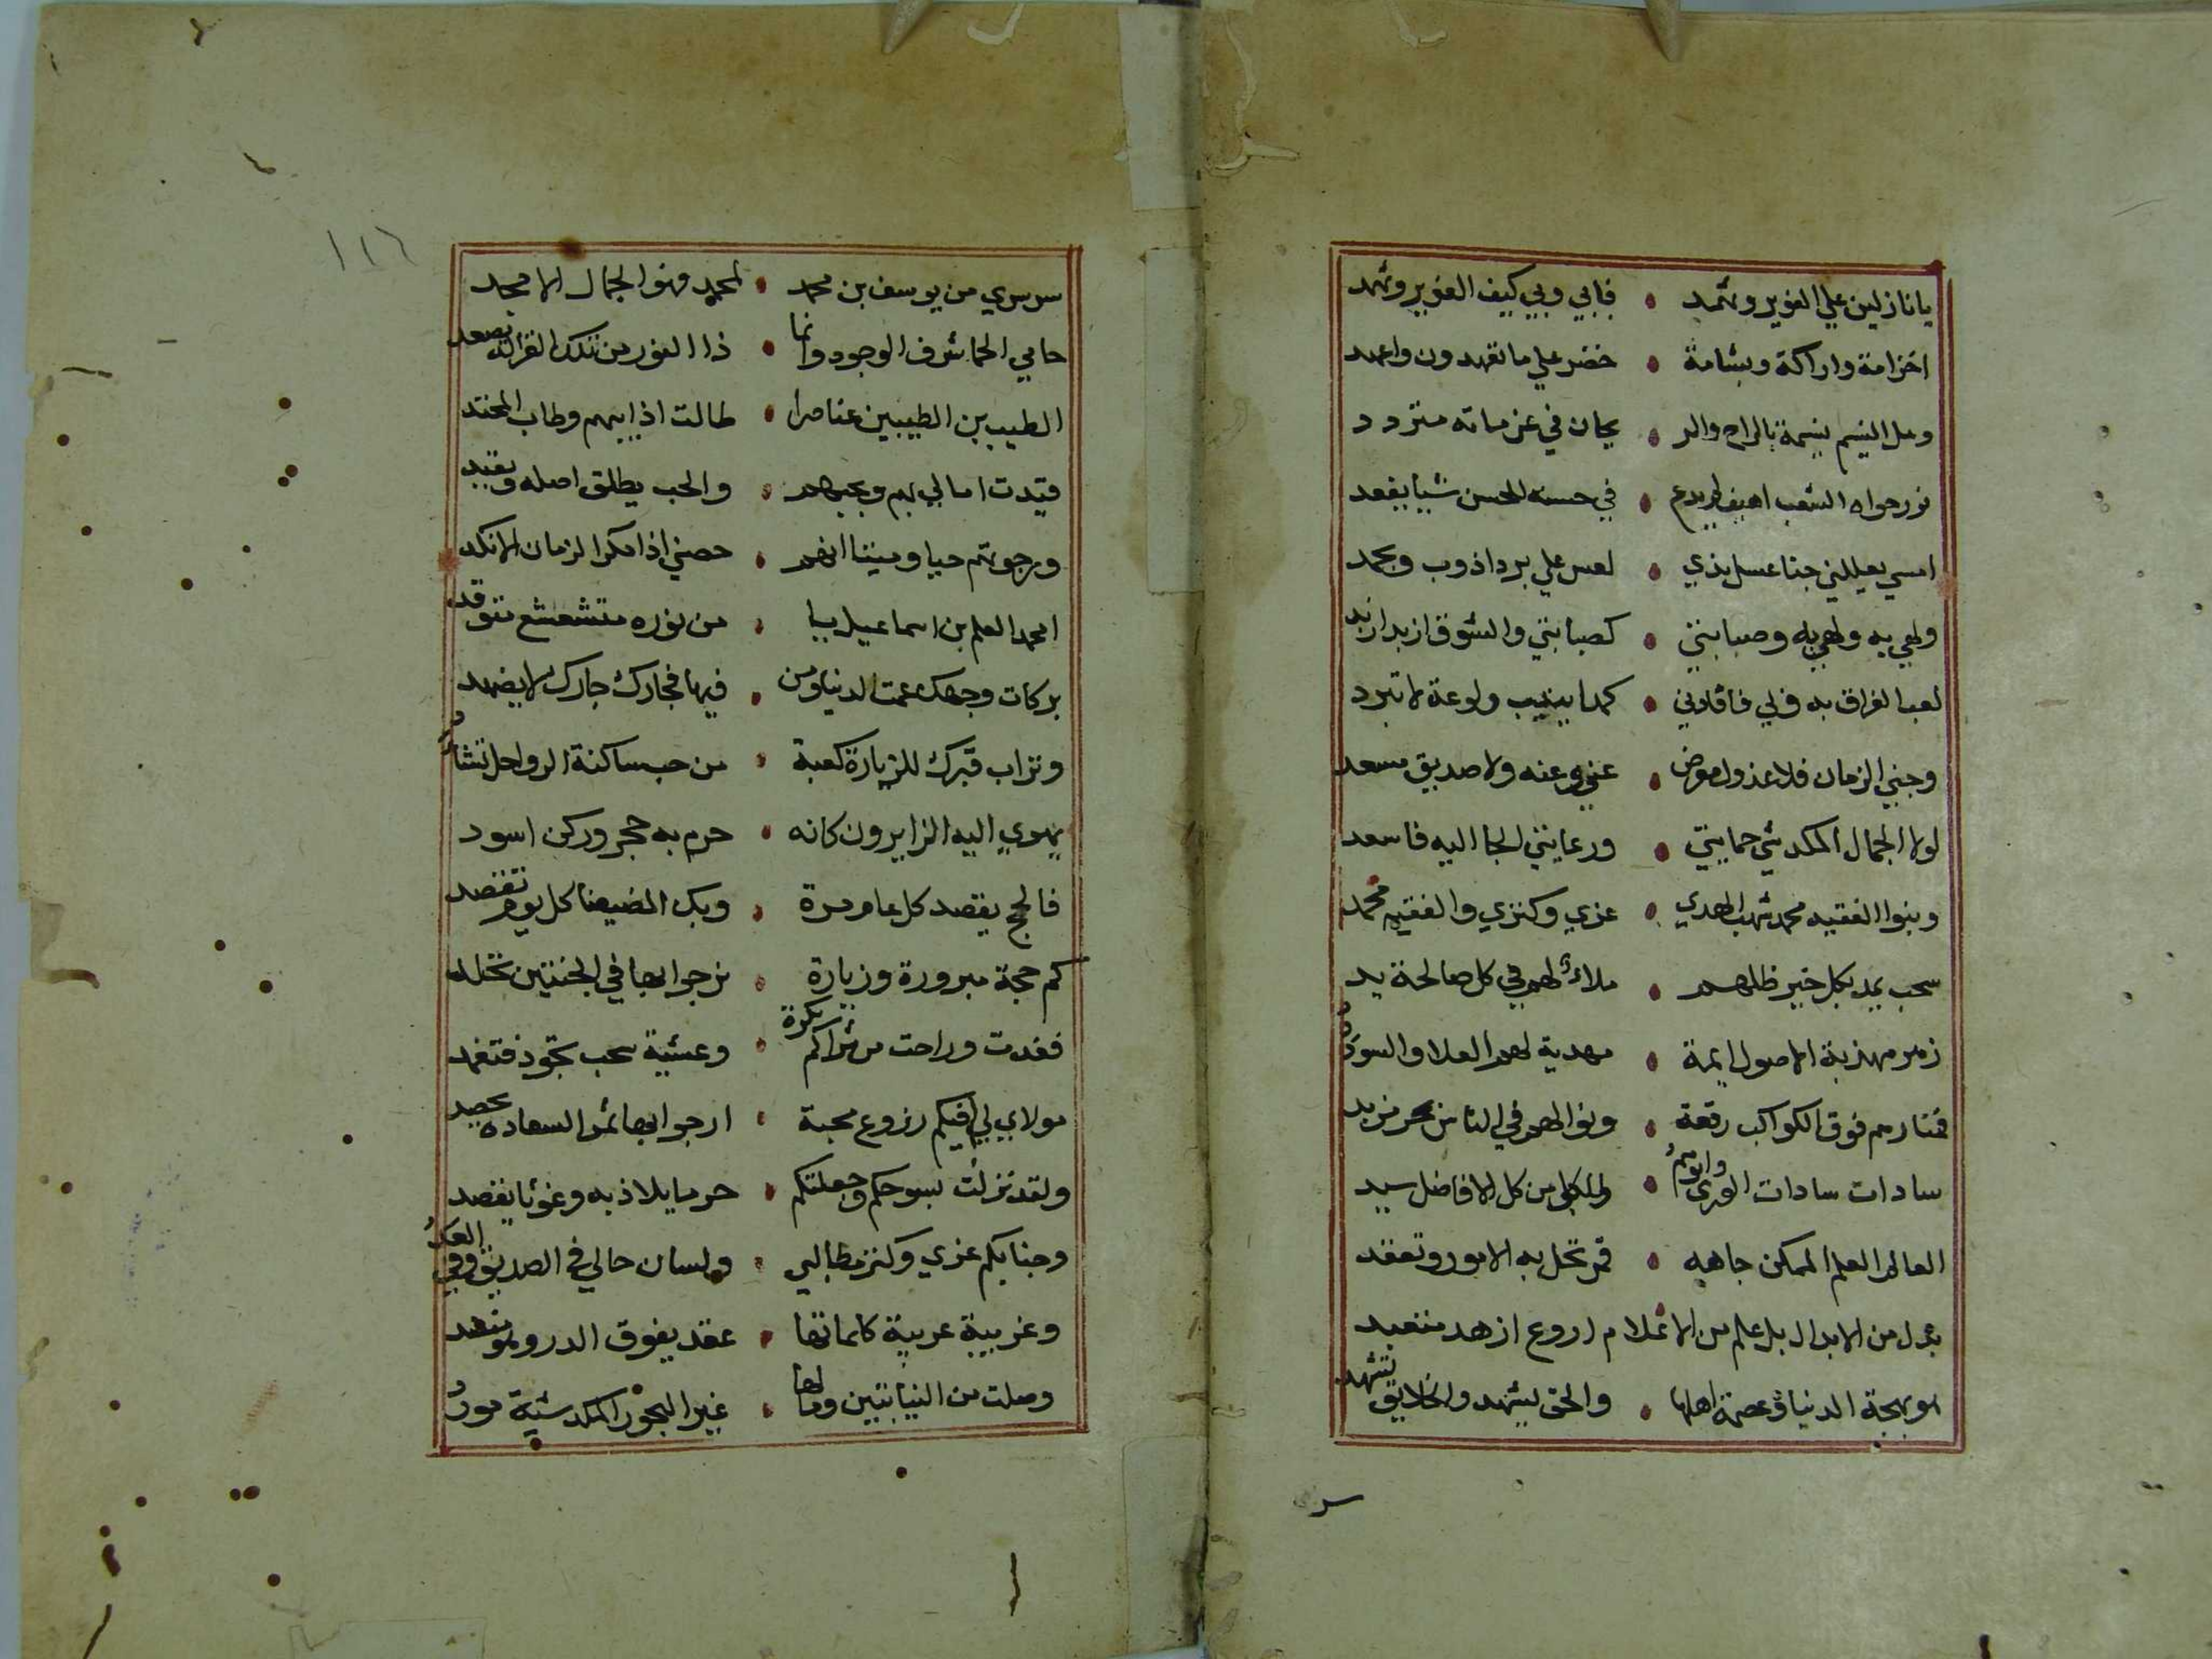 يا نازلين علي الغوير وثهمد • فبابي وبي كيف الغوير وثهمد
اخزامة واراكة وبشامة • خضر علي ما تعهدون واعهد
وهل النسيم نسيمة بالراح والر • يحان في عزماته متردد
نور حواه الشعب اهيف لم يدع • في حسنه للحسن شيا يفقد
امسي يعللني جنا عسل بذي • لعس علي برد اذوب ويجمد
ولهي به ولهي به وصبابتي • كصبابتي والشوق ازيد ازيد
لعب الفراق به وبي فافادني • كمدا يذيب ولوعة لا تبرد
وجني الزمان فلا عذول معرض • عني وعنه ولا صديق مسعد
لولا الجمال المكدشي حمايتي • ورعايتي الجا اليه فاسعد
وبنوا الفقيه محمد شهب الهدي • عزي وكنزي والفقيه محمد
سحب يمد بكل خير ظلهم • ملاء لهم في كل صالحة يد
زمر مهذبة الاصول ايمة • مهدية لهم العلا والسودد
فمنارهم فوق الكواكب رفعة • ونوالهم في الناس بحر مزبد
سادات سادات الوري وابوهم • والمكل من كل الافاضل سيد
العالم العلم الممكن جاهه • قمر تحل به الامور وتعقد
بدل من الابدال بل علم من الاعلام اروع ازهد متعبد
هو بهجة الدنيا وعصمة اهلها • والحق يشهد والخلايق تشهد
سر سري من يوسف بن محمد • لمحمد فهو الجمال الامجد
حامي الحما شرف الوجود وانما • ذا النور من تلك القراين يصعد
الطيب بن الطيبين عناصرا • طالت اذا ابيهم وطاب المحتد
قيدت امالي بهم وبحبهم • والحب يطلق اصله ويقيد
ورجوتهم حيا وميتا انهم • حصني اذا مكر الزمان الانكد
امحمد العلم بن اسماعيل يا • من نوره متشعشع متوقد
بركات وجهك عمت الدنيا ومن • فيها فجارك جارك لا يضهد
وتراب قبرك للزيارة كعبة • من حب ساكنة الرواحل تشد
يهوي اليه الزايرون كانه • حرم به حجر وركن اسود
فالحج يقصد كل عام مرة • وبك المضيفنا كل يوم تقصد
كم حجة مبرورة وزيارة • نرجوا بها في الجنتين نخلد
فغدت وراحت من ثراكم بكرة • وعشية سحب تجود فتعهد
مولاي لي فيكم زروع محبة • ارجوا بها ثمر السعادة يحصد
ولقد نزلت بسوحكم وجعلتكم • حرما يلاذ به وغوثا يقصد
وجنابكم عزي وكنز مطالبي • ولسان حالي في الصديق وفي العد
وغريبة عربية كلماتها • عقد يفوق الدر وهو منضد
وصلت من النيابتين وما لها • غير البحور المكدشية مورد